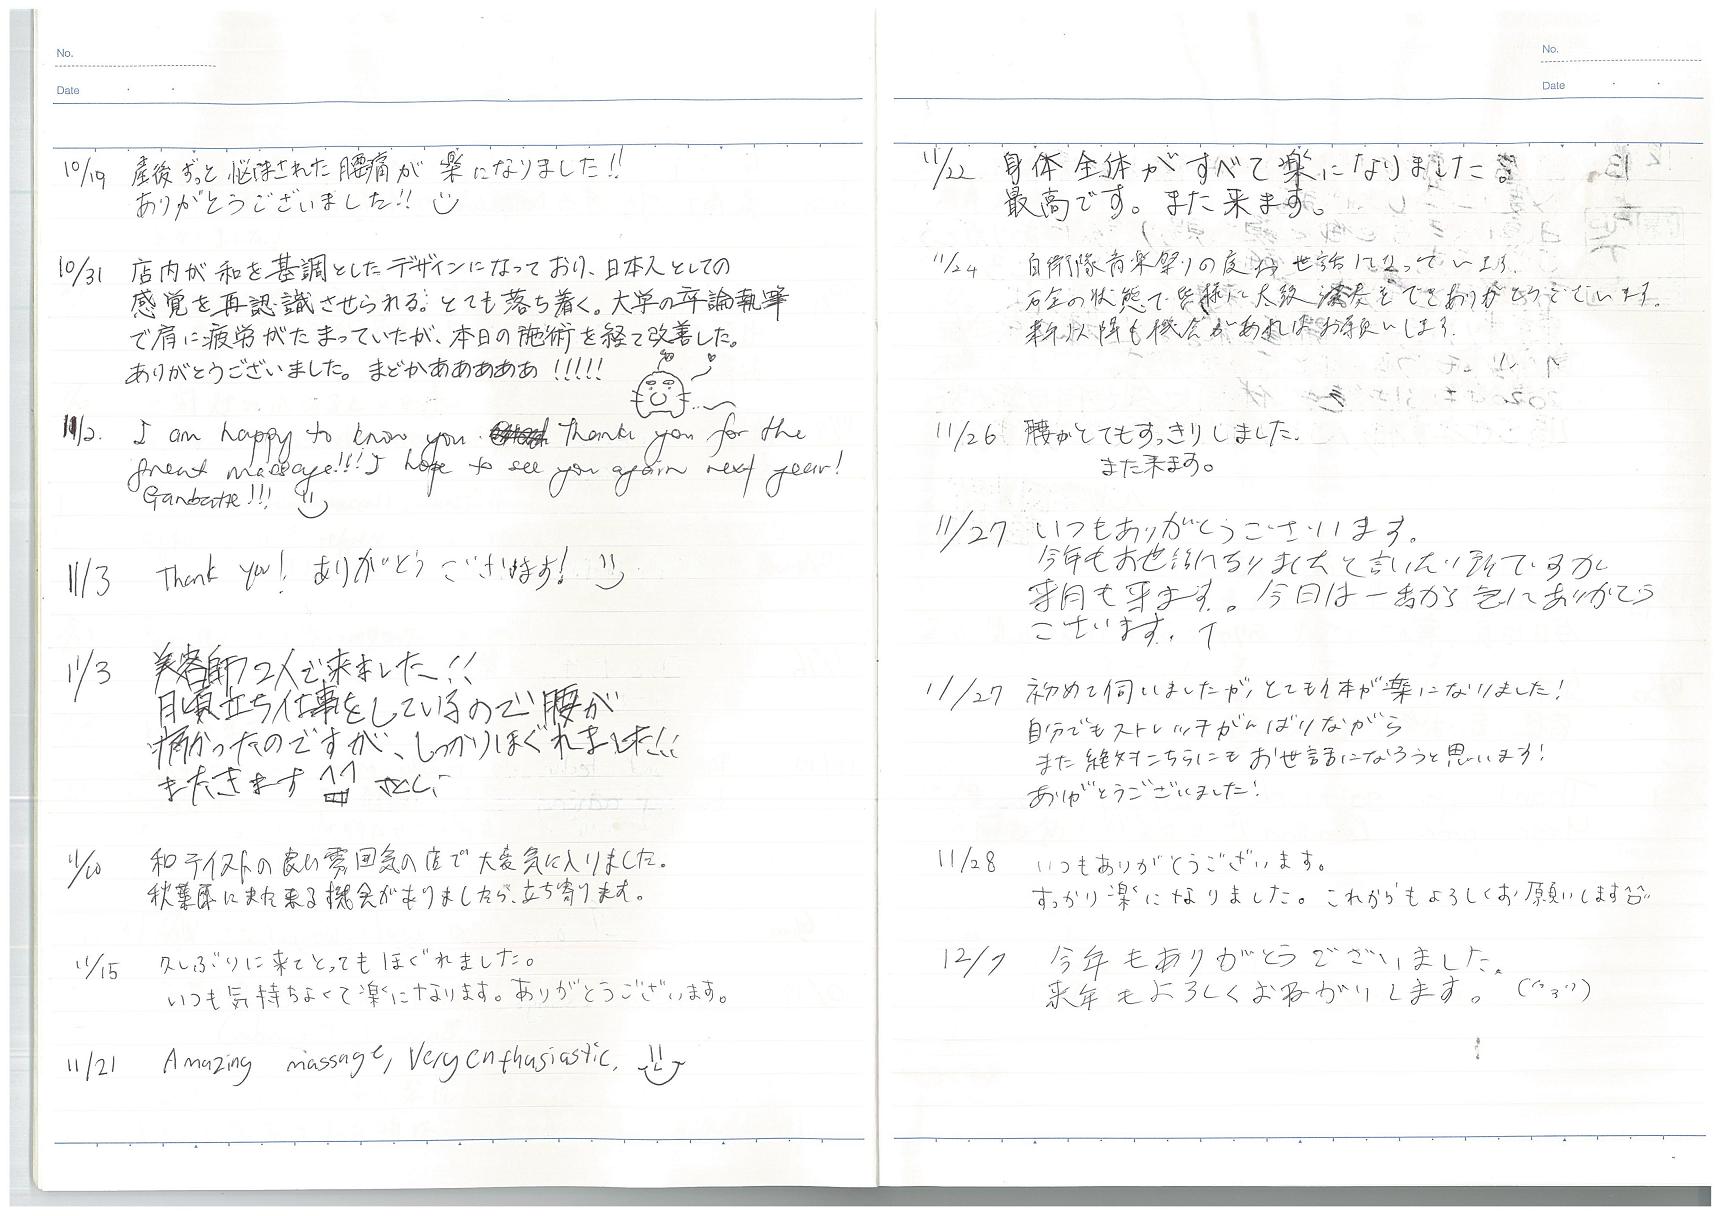 No.
Date
10/19 産後ずっと悩まされた腰痛が楽になりました!!
ありがとうございました!!
10/31 店内が和を基調としたデザインになっており、日本人としての
感覚を再認識させられる。とても落ち着く。大学の卒論執筆
で肩に疲労がたまっていたが、本日の施術を経て改善した。
ありがとうございました。まどかあああああ!!!!!
11/2. I am happy to know you. Thank you for the
great massage!!! I hope to see you again next year!
Ganbatte!!!
11/3 Thank you! ありがとうございます!
11/3 美容師2人で来ました!!
日頃立ち仕事をしているので腰が
痛かったのですが、しっかりほぐれました!!
またきます
11/10 和テイストの良い雰囲気の店で大変気に入りました。
秋葉原にまた来る機会がありましたら、立ち寄ります。
11/15 久しぶりに来てとってもほぐれました。
いつも気持ちよくて楽になります。ありがとうございます。
11/21 Amazing massage, Very enthusiastic.
No.
Date
11/22 身体全体がすべて楽になりました。
最高です。また来ます。
11/24 自衛隊音楽祭りの度お世話になっています。
の状態で皆様に太鼓演奏をできありがとうございます。
以降も機会があればお願いします。
11/26 腰がとてもすっきりしました。
また来ます。
11/27 いつもありがとうございます。
今年もお世話になりましたと言いたい所ですが
来月も来ます。今日は一番から急にありがとう
ございます。
11/27 初めて伺いましたが、とても体が楽になりました!
自分でもストレッチがんばりながら
また絶対こちらにもお世話になろうと思います!
ありがとうございました!
11/28 いつもありがとうございます。
すっかり楽になりました。これからもよろしくお願いします
12/7 今年もありがとうございました。
来年もよろしくおねがいします。